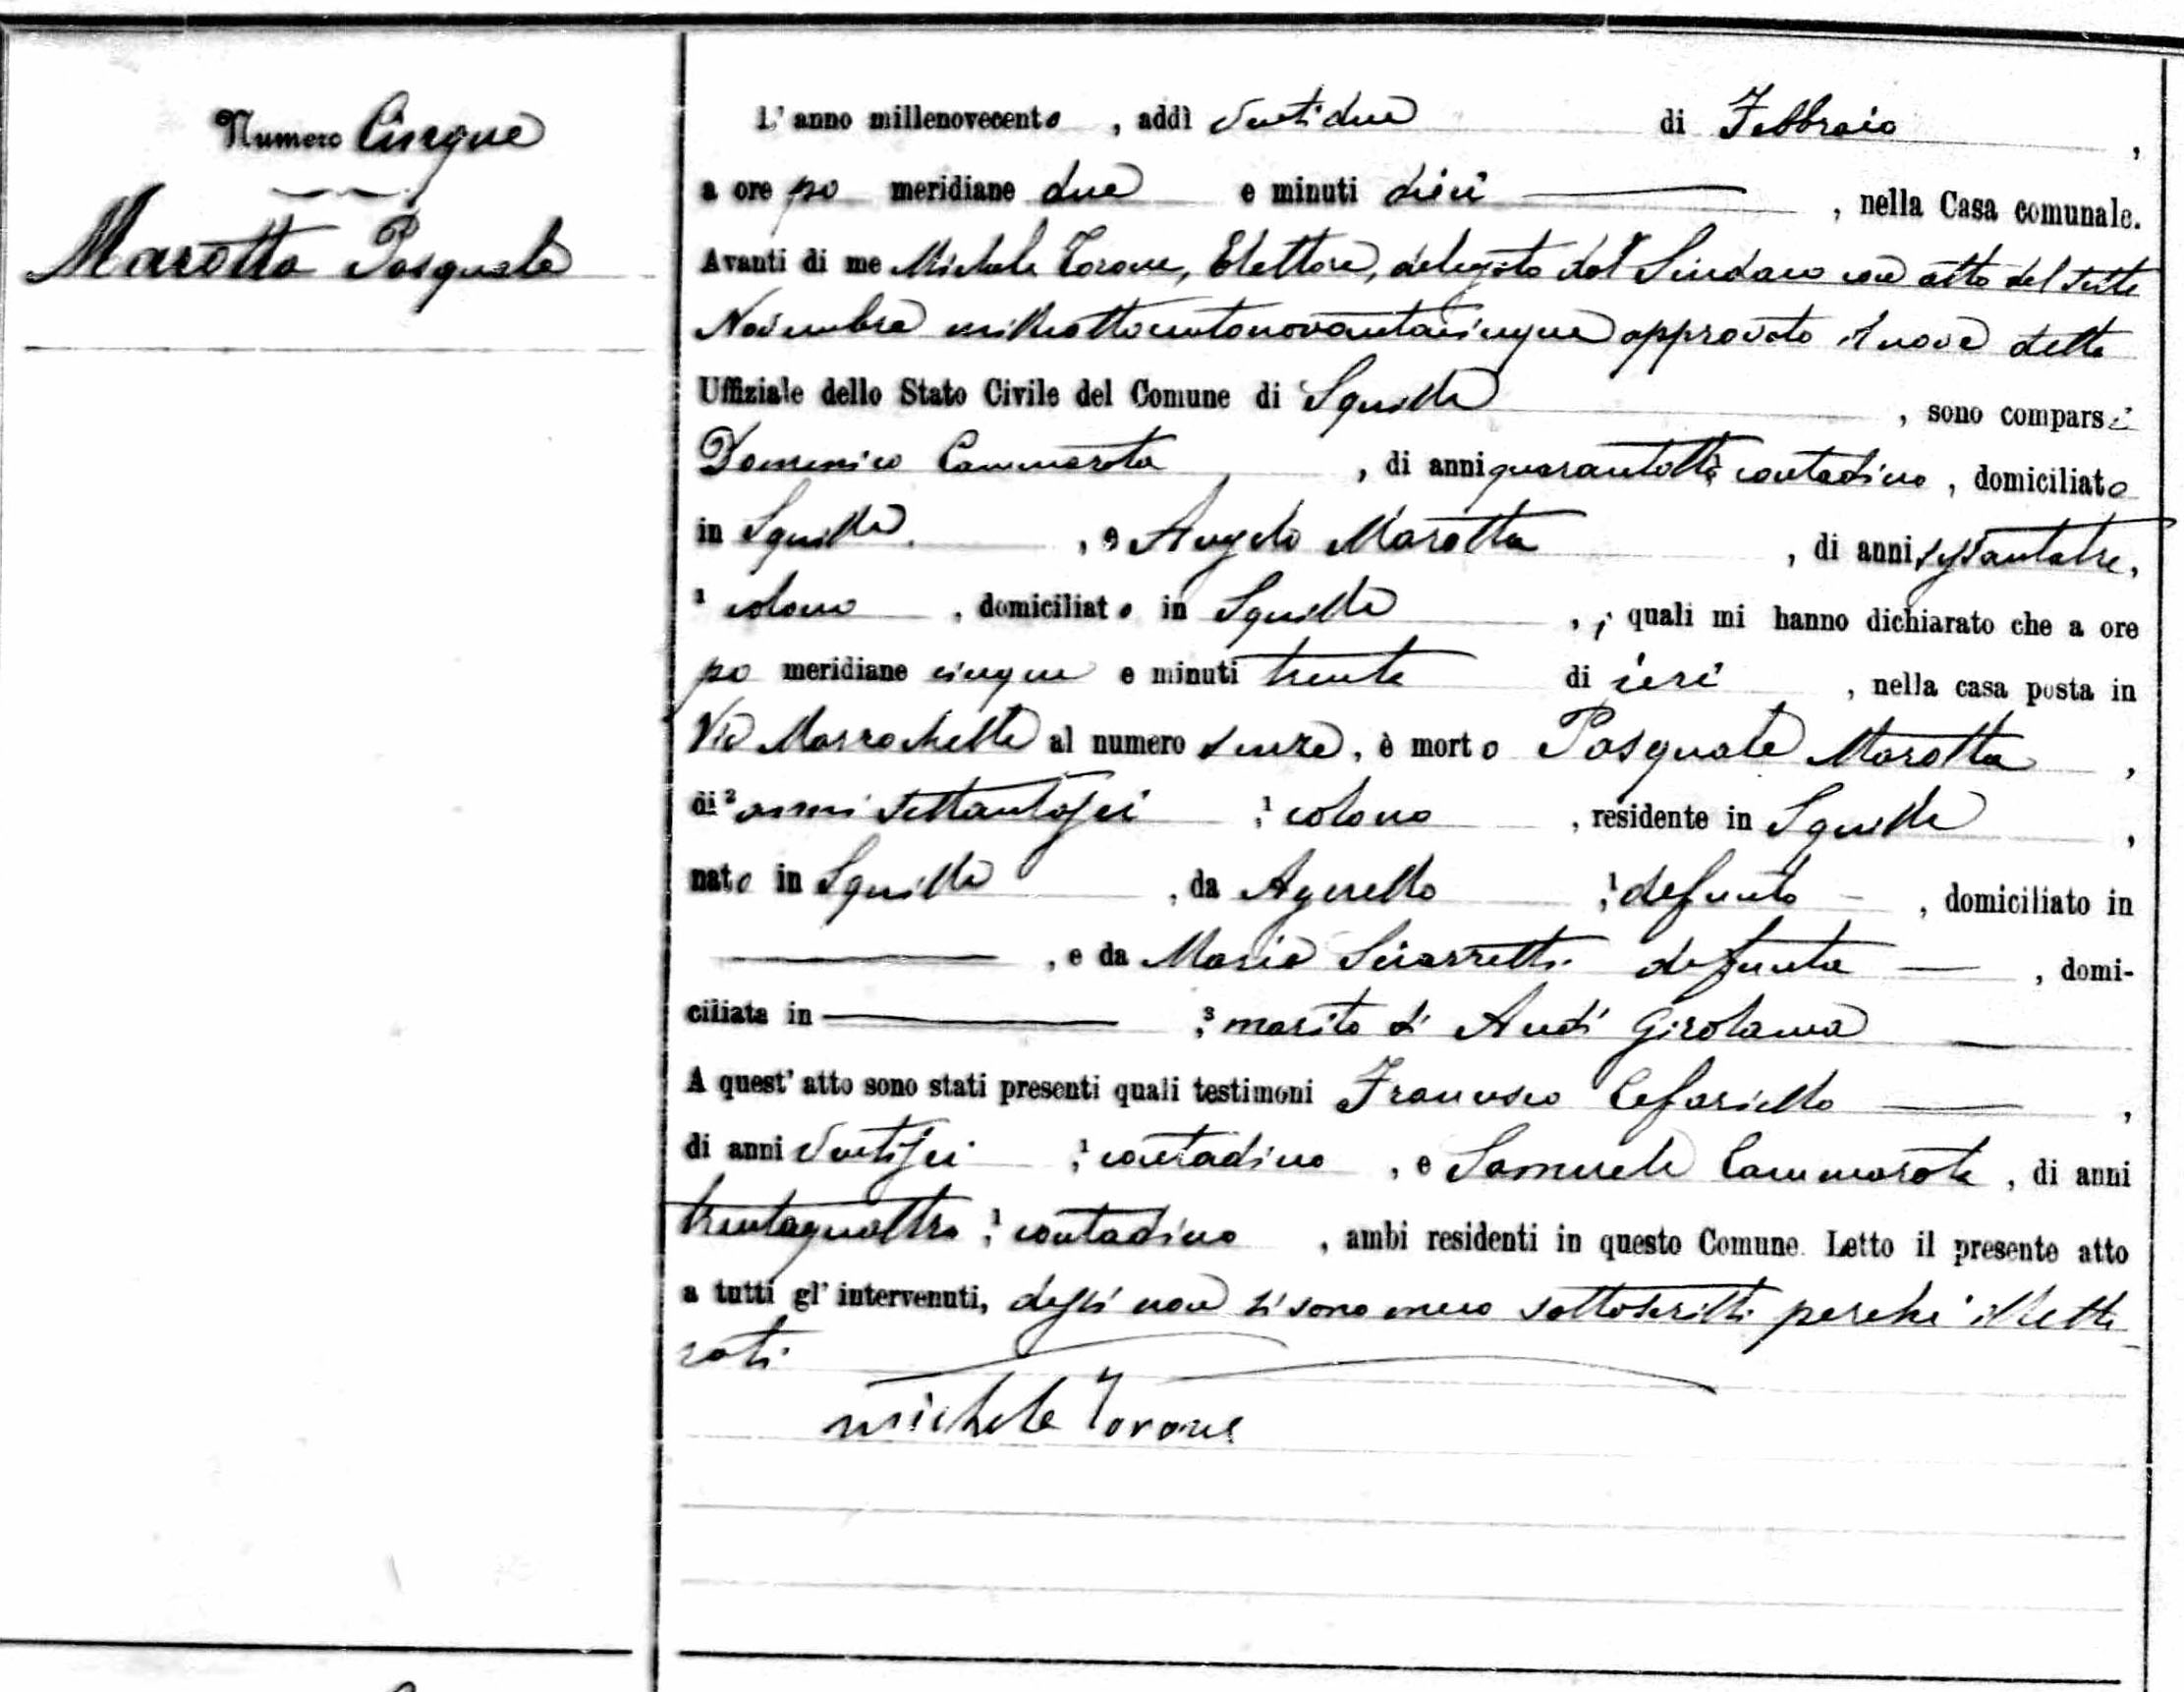 Numero Cinque
Marotta Pasquale
L'anno millenovecento, addì ventidue di Febbraio,
a ore po meridiane due e minuti dieci, nella Casa comunale.
Avanti di me Michele Torone, Elettore, delegato dal Sindaco con atto del sette
Novembre milleottocentonovantacinque approvato il nove detto
Uffiziale dello Stato Civile del Comune di Squille, sono comparsi
Domenico Cammarota, di anni quarantotto, contadino, domiciliato
in Squille, e Angelo Marotta, di anni sessantatre,
1 colono, domiciliato in Squille, i quali mi hanno dichiarato che a ore
po meridiane cinque e minuti trenta di ieri, nella casa posta in
Via al numero senza, è morto Pasquale Marotta,
di 2 anni settantasei, 1 colono, residente in Squille,
nato in Squille, da Agnello, 1 defunto, domiciliato in
, e da Maria defunta, domi-
ciliata in, 3 marito di Girolama
A quest'atto sono stati presenti quali testimoni Francesco Cefariello,
di anni ventisei, 1 contadino, e Samuele Cammarota, di anni
trentaquattro, 1 contadino, ambi residenti in questo Comune. Letto il presente atto
a tutti gl'intervenuti, dessi non si sono meco sottoscritti perchè illette
rati
Michele Torone